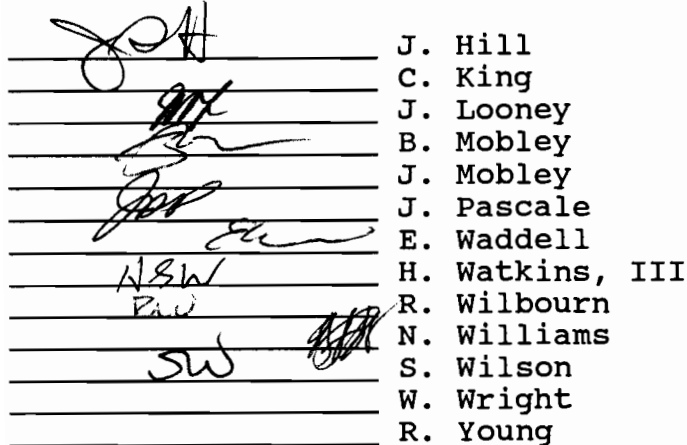 J. Hill
C. King
J. Looney
B. Mobley
J. Mobley
J. Pascale
E. Waddell
HSW H. Watkins, III
R. Wilbourn
N. Williams
SW S. Wilson
W. Wright
R. Young